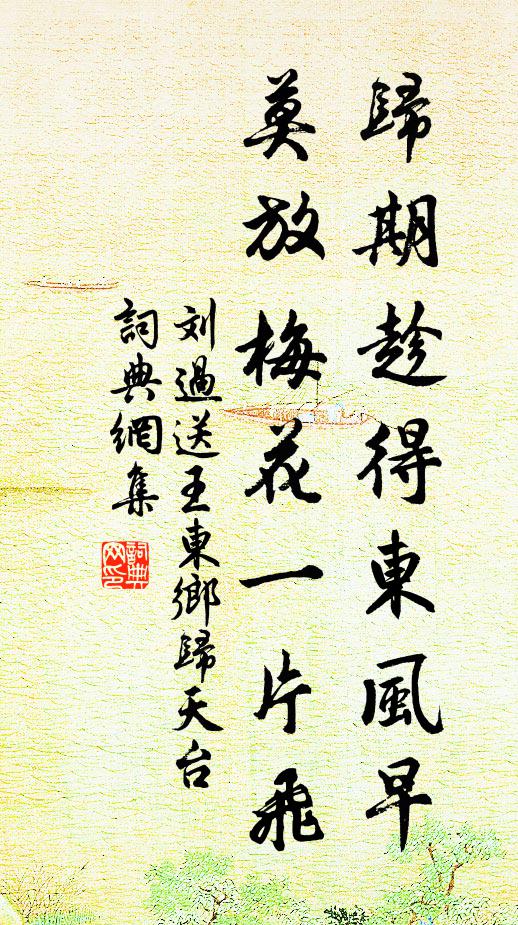 歸期趁得東風早
莫放梅花一片飛
刘過送王東鄉歸天台
詞典網集
詞典网印